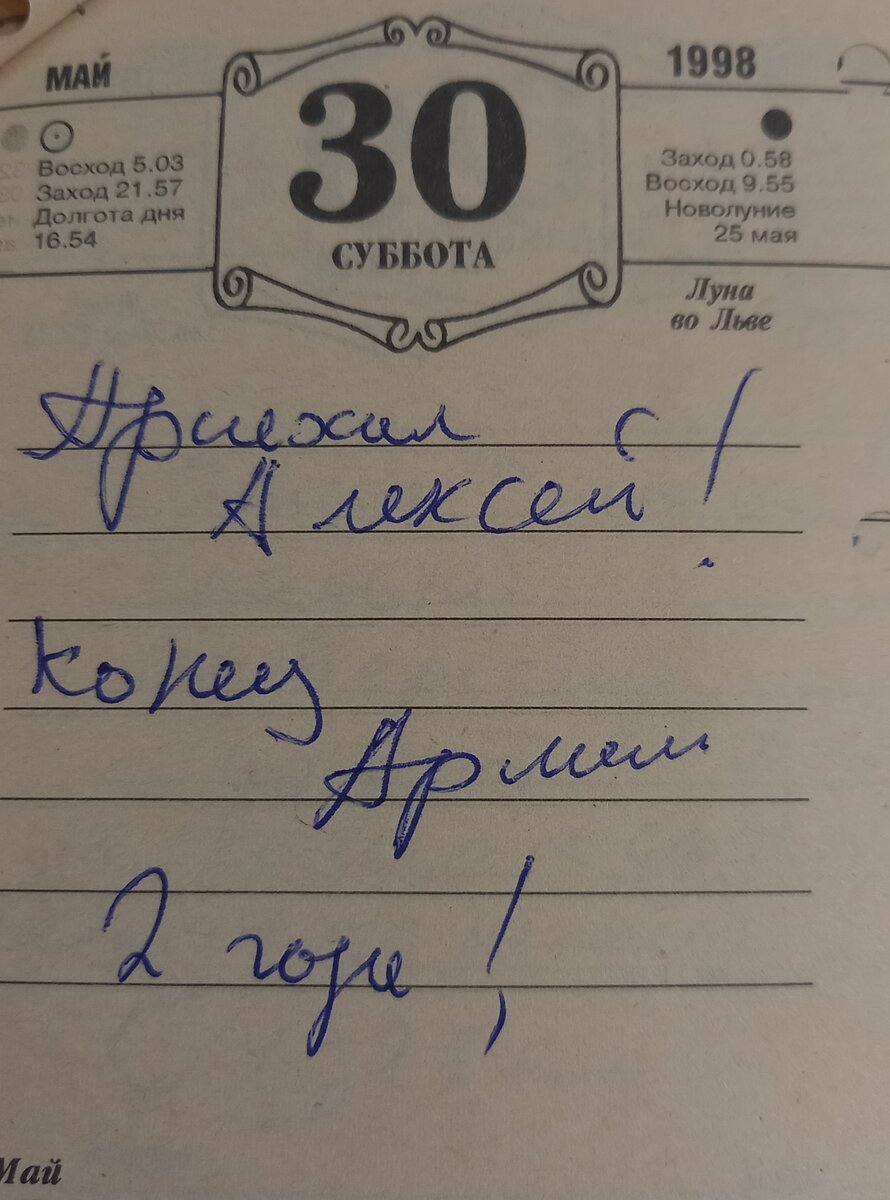 МАЙ
30
СУББОТА
1998
Восход 5.03
Заход 21.57
Долгота дня
16.54
Заход 0.58
Восход 9.55
Новолуние
25 мая
Луна
во Льве
Приехал
Алексей!
Конец
Армии
2 года!
Май